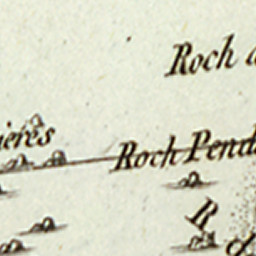 Roch
ières
Roch Pend
R